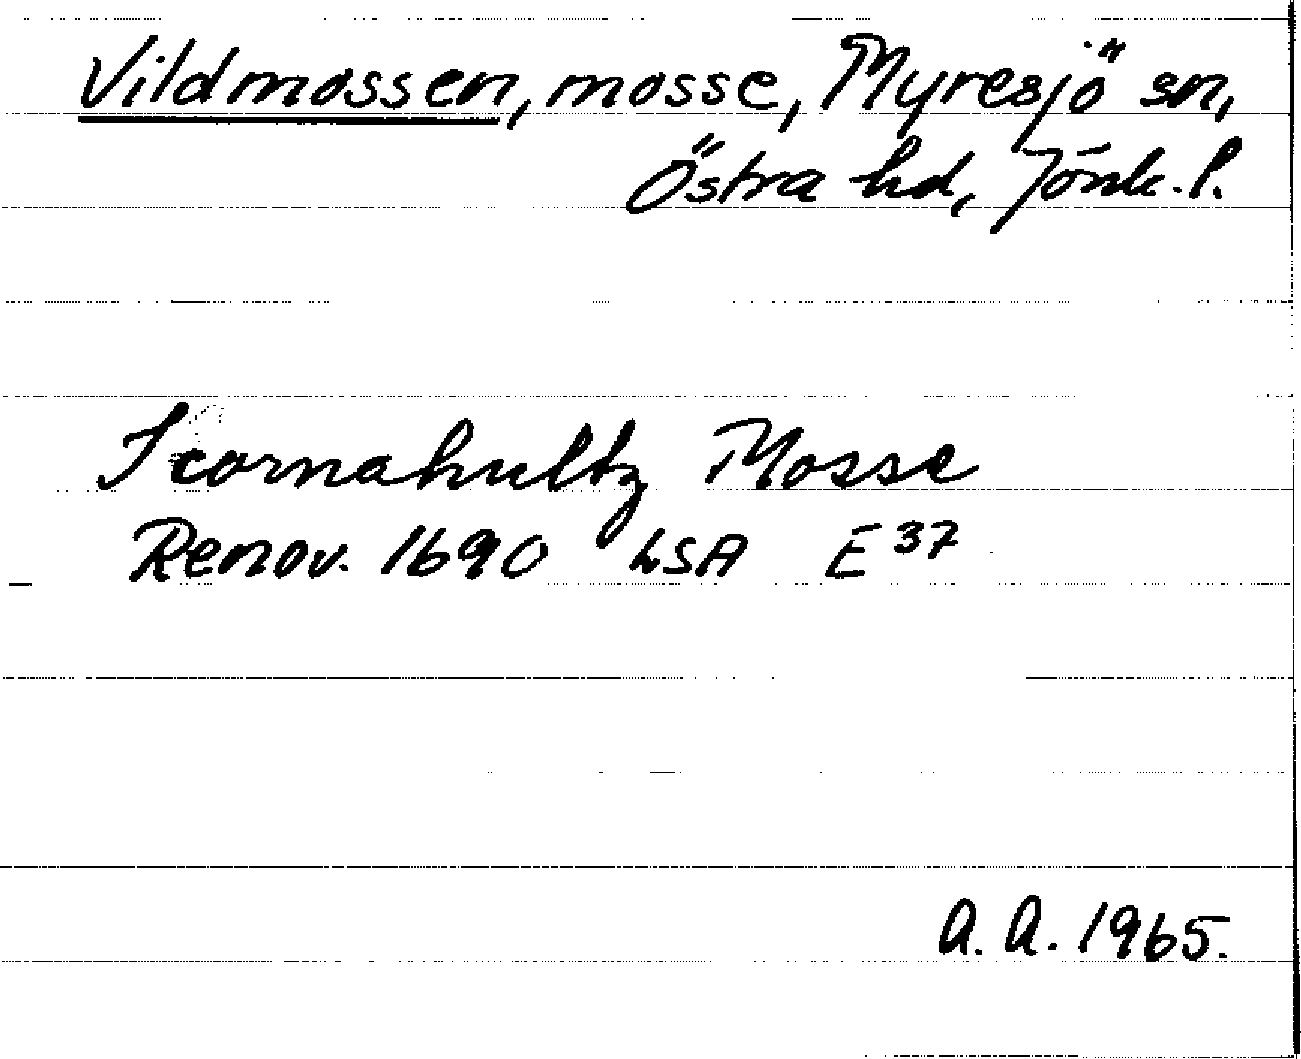 Vildmossen, mosse, Myresjö sn,
Östra hd, Jönk. l.
Mosse
Renov. 1690 LSA E 37
A. A. 1965.